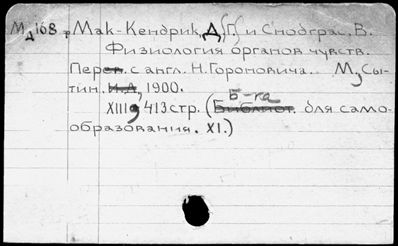 М д 168 Мак-Кендрик, Д[Г.] и Снодграс, В.
Физиология органов чувств.
Перев. с англ. Н. Гороновича. М, Сы-
тин. И.Д., 1900.
XIII, 413 стр. (Библиот. Б-ка для само-
образования. XI.)